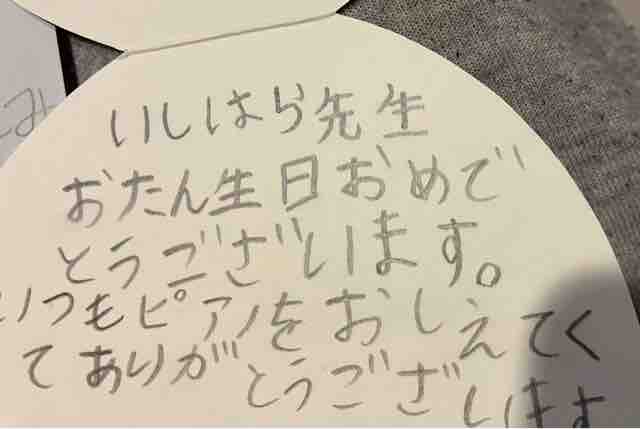 いしはら先生
おたん生日おめで
とうございます。
いつもピアノをおしえてく
てありがとうございます